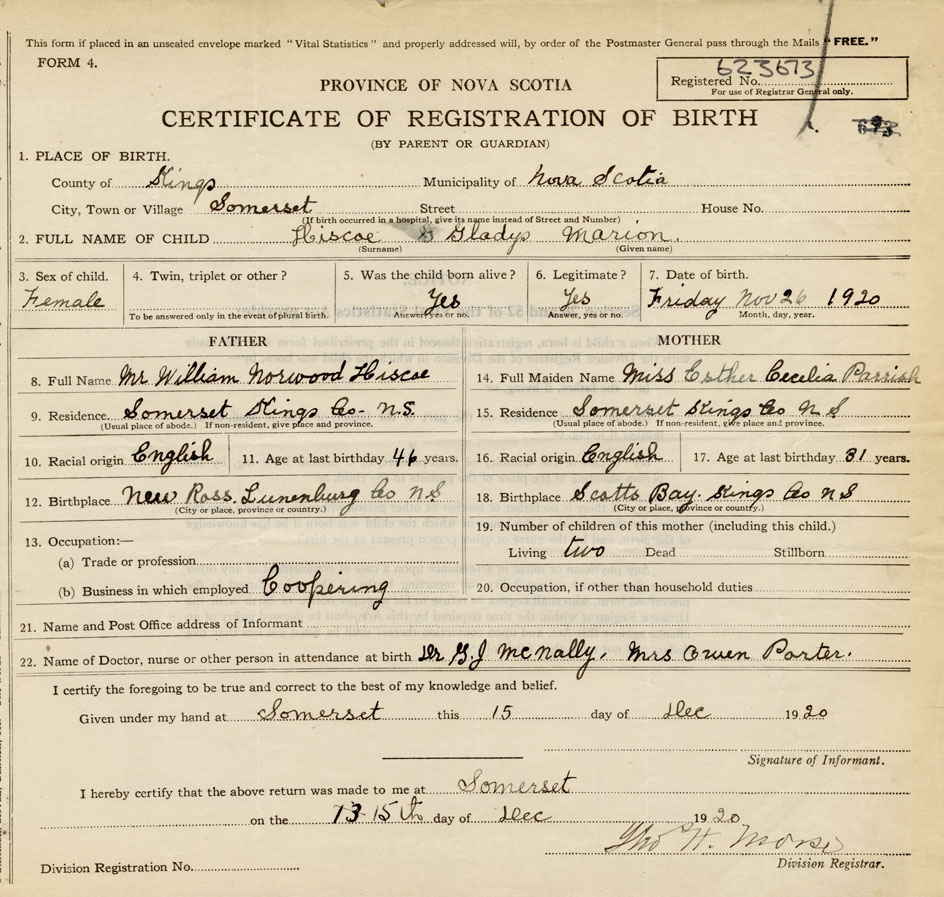 This form if placed in an unsealed envelope marked "Vital Statistics" and properly addressed will, by order of the Postmaster General pass through the Mails "FREE."
FORM 4.
623673
Registered No.
For use of Registrar General only.
PROVINCE OF NOVA SCOTIA
CERTIFICATE OF REGISTRATION OF BIRTH
(BY PARENT OR GUARDIAN)
1. PLACE OF BIRTH.
County of Kings Municipality of Nova Scotia
City, Town or Village Somerset Street House No.
(If birth occurred in a hospital, give its name instead of Street and Number)
2. FULL NAME OF CHILD Hiscoe Gladys Marion.
(Surname) (Given name)
3. Sex of child. 4. Twin, triplet or other? 5. Was the child born alive? 6. Legitimate? 7. Date of birth.
Female Yes Yes Friday Nov 26 1920
To be answered only in the event of plural birth. Answer yes or no. Answer, yes or no. Month, day, year.
FATHER MOTHER
8. Full Name Mr William Norwood Hiscoe 14. Full Maiden Name Miss Esther Cecelia Parrish
9. Residence. Somerset Kings Co- N.S. 15. Residence Somerset Kings Co N S
(Usual place of abode.) If non-resident, give place and province. (Usual place of abode.) If non-resident, give place and province.
10. Racial origin English 11. Age at last birthday 46 years. 16. Racial origin English 17. Age at last birthday 31 years.
12. Birthplace New Ross. Lunenburg Co N S 18. Birthplace Scotts Bay. Kings Co N S
(City or place, province or country.) (City or place, province or country.)
13. Occupation:— 19. Number of children of this mother (including this child.)
(a) Trade or profession Living two Dead Stillborn
(b) Business in which employed Coopering 20. Occupation, if other than household duties
21. Name and Post Office address of Informant
22. Name of Doctor, nurse or other person in attendance at birth Dr G.J McNally. Mrs Owen Porter.
I certify the foregoing to be true and correct to the best of my knowledge and belief.
Given under my hand at Somerset this 15 day of Dec 1920
Signature of Informant.
I hereby certify that the above return was made to me at Somerset
on the 15th day of Dec 1920
Tho H. Morse
Division Registration No. Division Registrar.